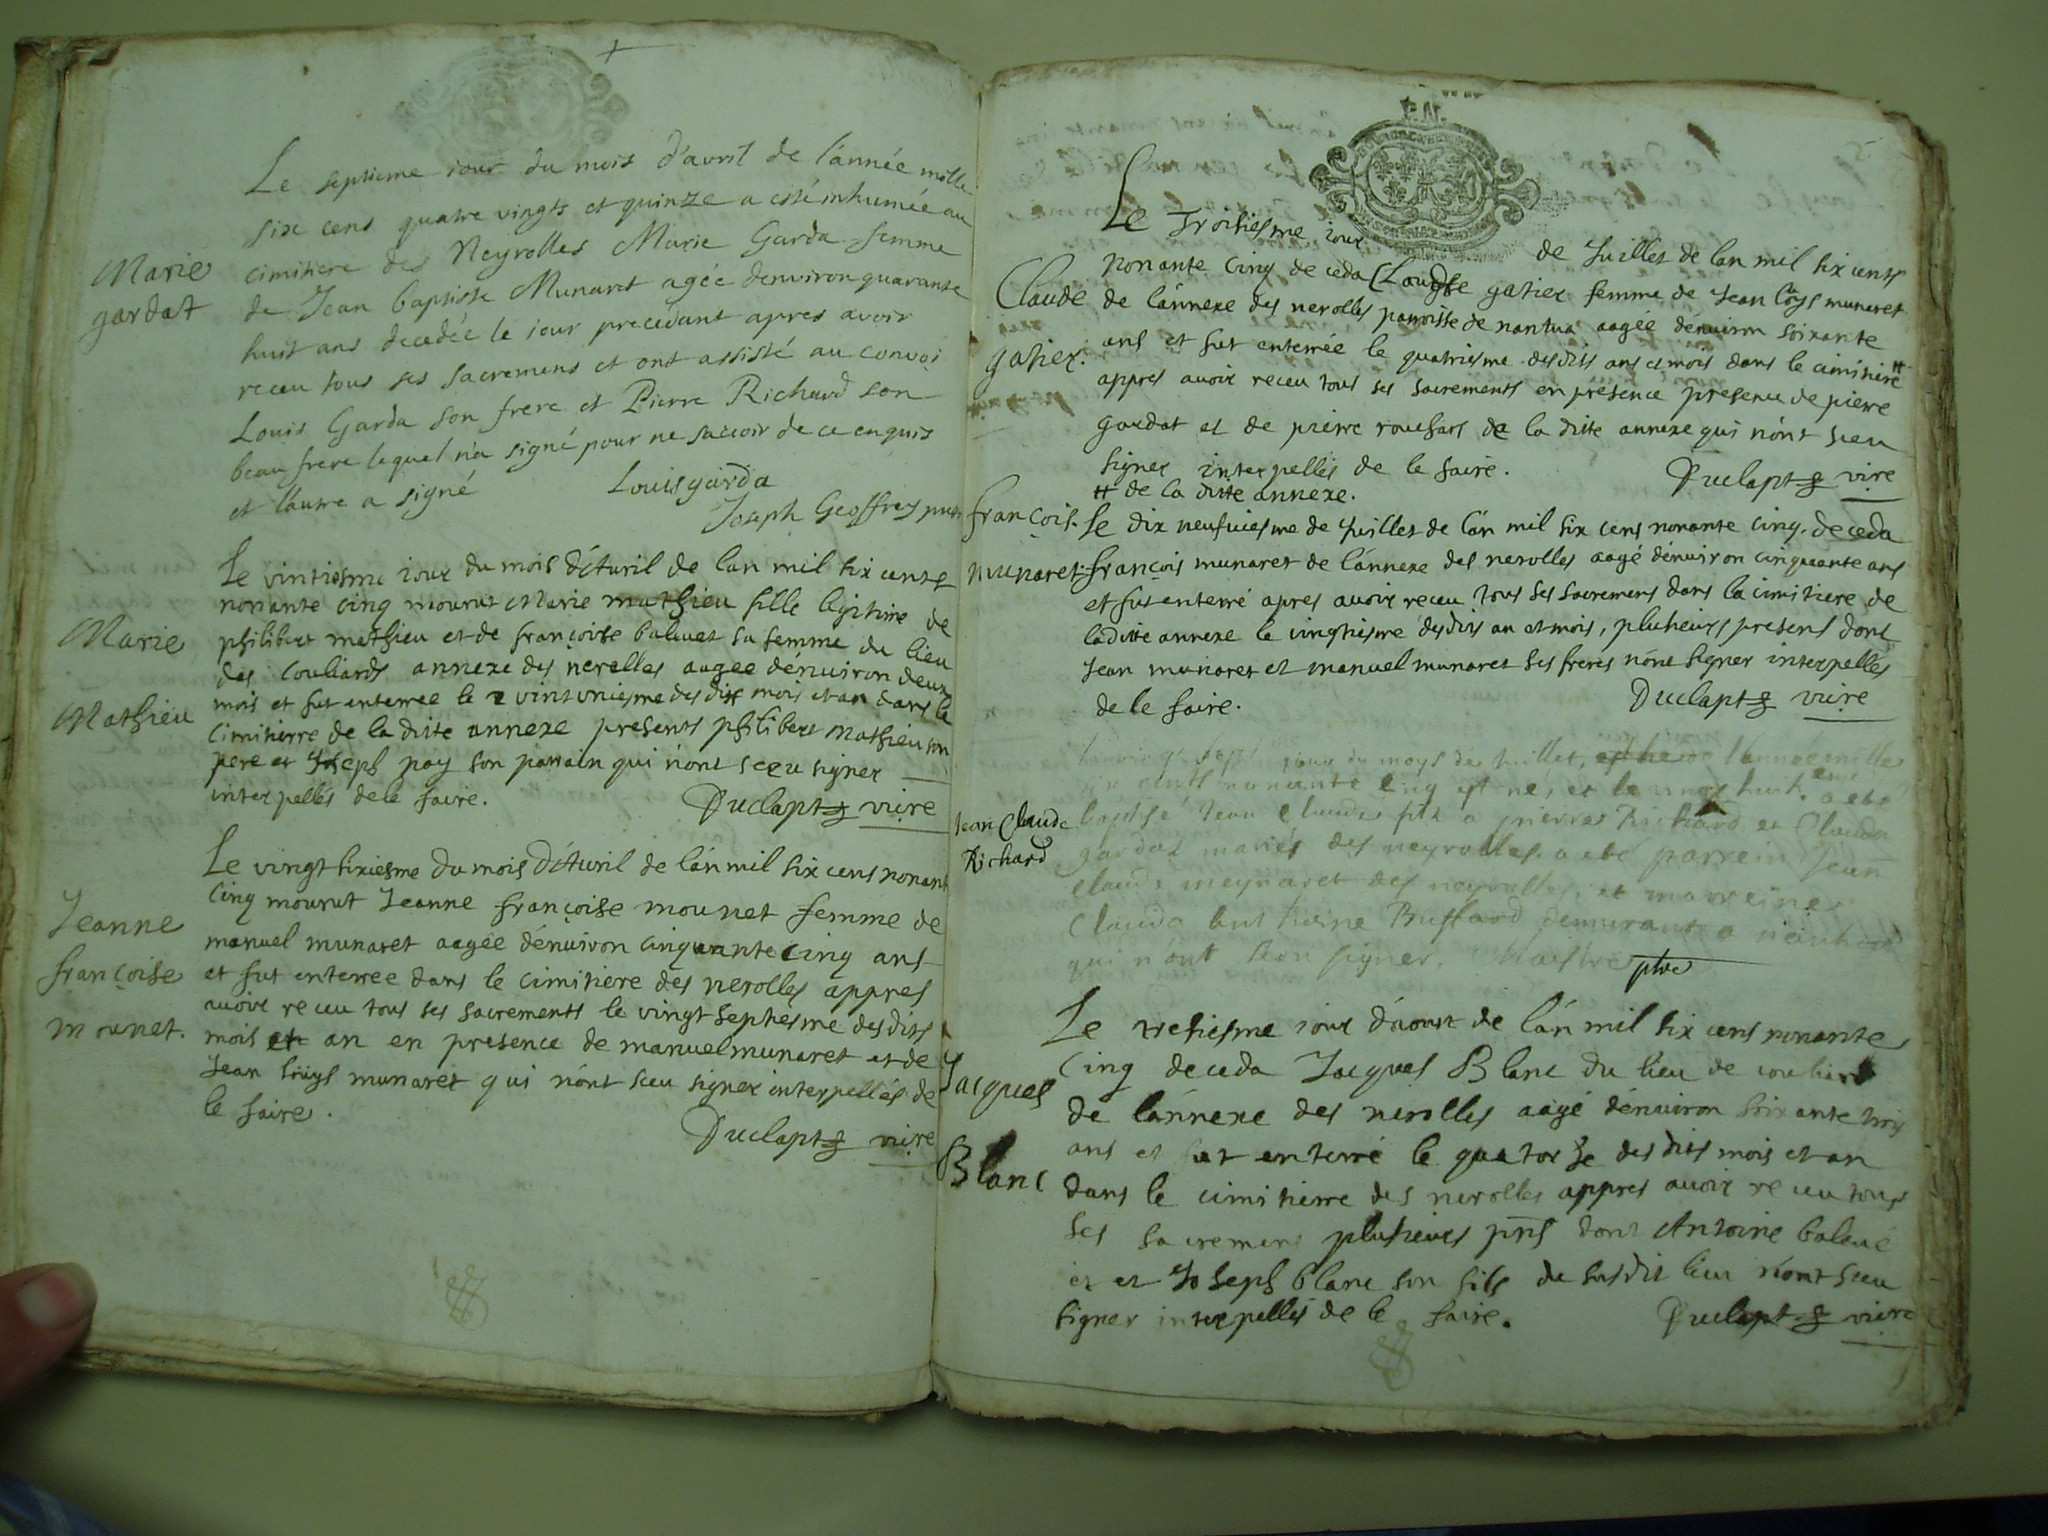 Le septieme iour du mois d'avril de l'année mille
six cens quatre vingts et quinze a esté inhumée au
cimitiere des Neyrolles Marie Garda femme
Marie
gardat
de Jean baptiste Munaret agée denviron quarante
huit ans decedée le iour precedant apres avoir
receu tous ses sacremens et ont assisté au convoi
Louis Garda son frere et Pierre Richard son
beau frere lequel n'a signé pour ne sacvoir de ce enquis
et l'autre a signé Louis garda
Joseph Geoffrey
Le vintiesme iour du mois d'Avril de lan mil six cents
nonante cinq mourut Marie mathieu fille legitime de
Marie
Mathieu
philibert mathieu et de françoise baluet sa femme du lieu
des Couliards annexe des nerolles aagee dénuiron deux
mois et fut enterree le vintuniesme des dits mois et an dans le
cimitierre de la ditte annexe presents philibert mathieu son
pere et Joseph pay son parrain qui n'ont sceu signer
interpellés de le faire. Duclapt vire
Le vingt sixiesme du mois d'Avril de l'an mil six cens nonante
cinq mourut Jeanne françoise mounet femme de
Jeanne
françoise
mounet.
manuel munaret aagée dénuiron cinquante cinq ans
et fut enterree dans le cimitiere des nerolles appres
auoir receu tous ses sacrements le vingt septiesme des dits
mois et an en presence de manuel munaret et de
Jean loüys munaret qui n'ont sceu signer interpellés de
le faire.
Duclapt vire
Le Troisiesme iour de Juillet de lan mil six cents
nonante cinq deceda Claudse gatier femme de Jean loys munaret
Claude
gatier.
de l'annexe des nerolles parroisse de nantua aagée dénuiron soixante
ans et fut enterrée le quatriesme desdits ans et mois dans le cimitiere #
appres auoir receu tous ses sacrements en présence presence de pierre
gardat et de pierre de la ditte annexe qui n'ont sceu
signer interpellés de le faire. Duclapt vire
# de la ditte annexe.
françois
munaret.
Le dix neufuiesme de Juillet de l'an mil six cens nonante cinq deceda
françois munaret de l'annexe des nerolles aagé dénuiron cinquante ans
et fut enterré apres auoir receu tous ses sacremens dans la cimitiere de
laditte annexe le vingtiesme desdits an et mois, plusieurs presens dont
Jean munaret et manuel munaret ses freres n'ont signer interpellés
de le faire. Duclapt vire
jour du moys de Juillet, l'année mille
six cents nonante cinq est né, et le a esté
Jean Claude
Richard
baptisé Jean Claude filz a pierre Richard et Claude
gardat mariés des neyrolles. a esté parrein Jean
Claude meynaret des neyrolles, et marreine
Claude Buffard demurant a
qui n'ont sceu signer. ptre
Le tresiesme iour d'aoust de l'an mil six cens nonante
cinq deceda Jacques Blanc du lieu de
Jacques
Blanc
de l'annexe des nerolles aagé dénuiron soixante trois
ans et fut enterré le quatorze des dits mois et an
dans le cimitierre des nerolles appres auoir receu tous
ses sacremens plusieurs pnts dont Antoine
et Joseph blanc son fils du susdit lieu n'ont sceu
signer interpellés de le faire. Duclapt vire